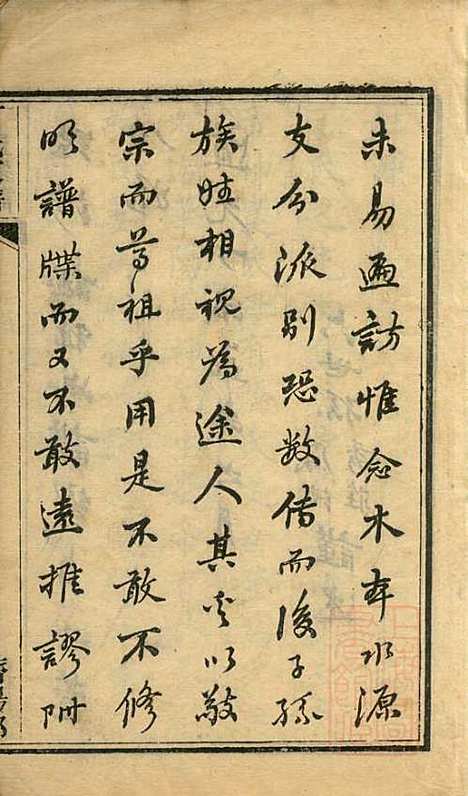 未易遍訪惟念木本水源
支分派别恐数传而後子孫
族姓相視為途人其何以敬
宗而尊祖乎用是不敢不修
明譜牒而又不敢遠推謬附